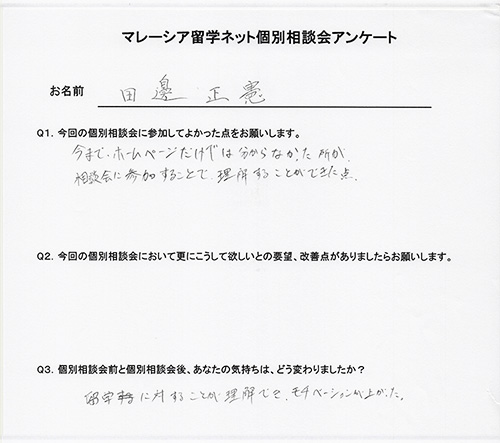 マレーシア留学ネット個別相談会アンケート
お名前 田邊 正憲
Q1. 今回の個別相談会に参加してよかった点をお願いします。
今まで、ホームページだけでは分からなかった所が、
相談会に参加することで、理解することができた点。
Q2. 今回の個別相談会において更にこうして欲しいとの要望、改善点がありましたらお願いします。
Q3. 個別相談会前と個別相談会後、あなたの気持ちは、どう変わりましたか?
留学に対することが理解でき、モチベーションが上がった。